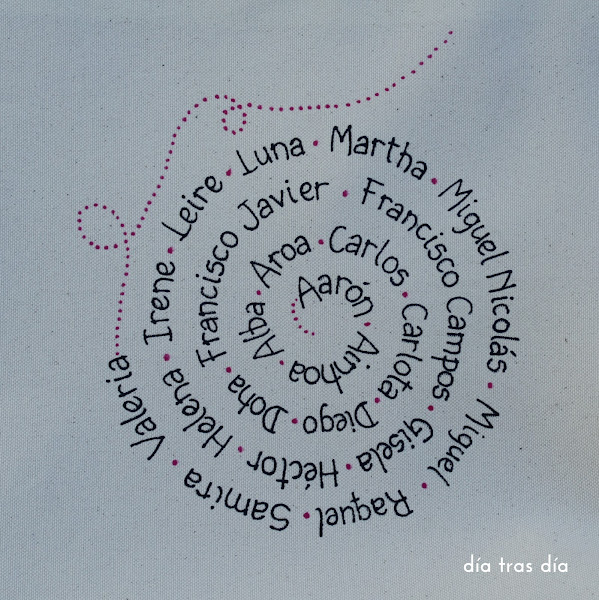 Aarón · Ainhoa · Alba · Aroa · Carlos · Carlota · Diego · Doha · Francisco Javier · Francisco Campos · Gisela · Héctor · Helena · Irene · Leire · Luna · Martha · Miguel Nicolás · Miguel · Raquel · Samira · Valeria
día tras día